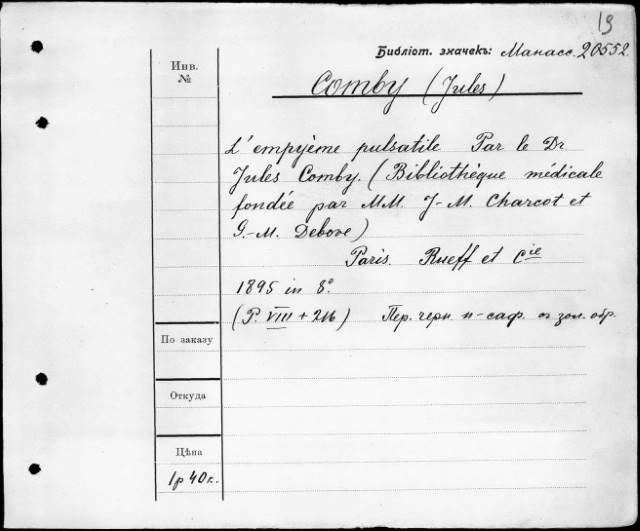 19
Библіот. значекъ: Манасс. 20552.
Инв. №
Comby (Jules)
L'empyème pulsatile Par le Dr
Jules Comby. (Bibliothèque médicale
fondée par MM. J-M. Charcot et
G.-M. Debove)
Paris. Rueff et Cie
1895 in 8º
(P. VIII + 216) Пер. черн. п-саф. с зол. обр.
По заказу
Откуда
Цѣна
1р 40к.